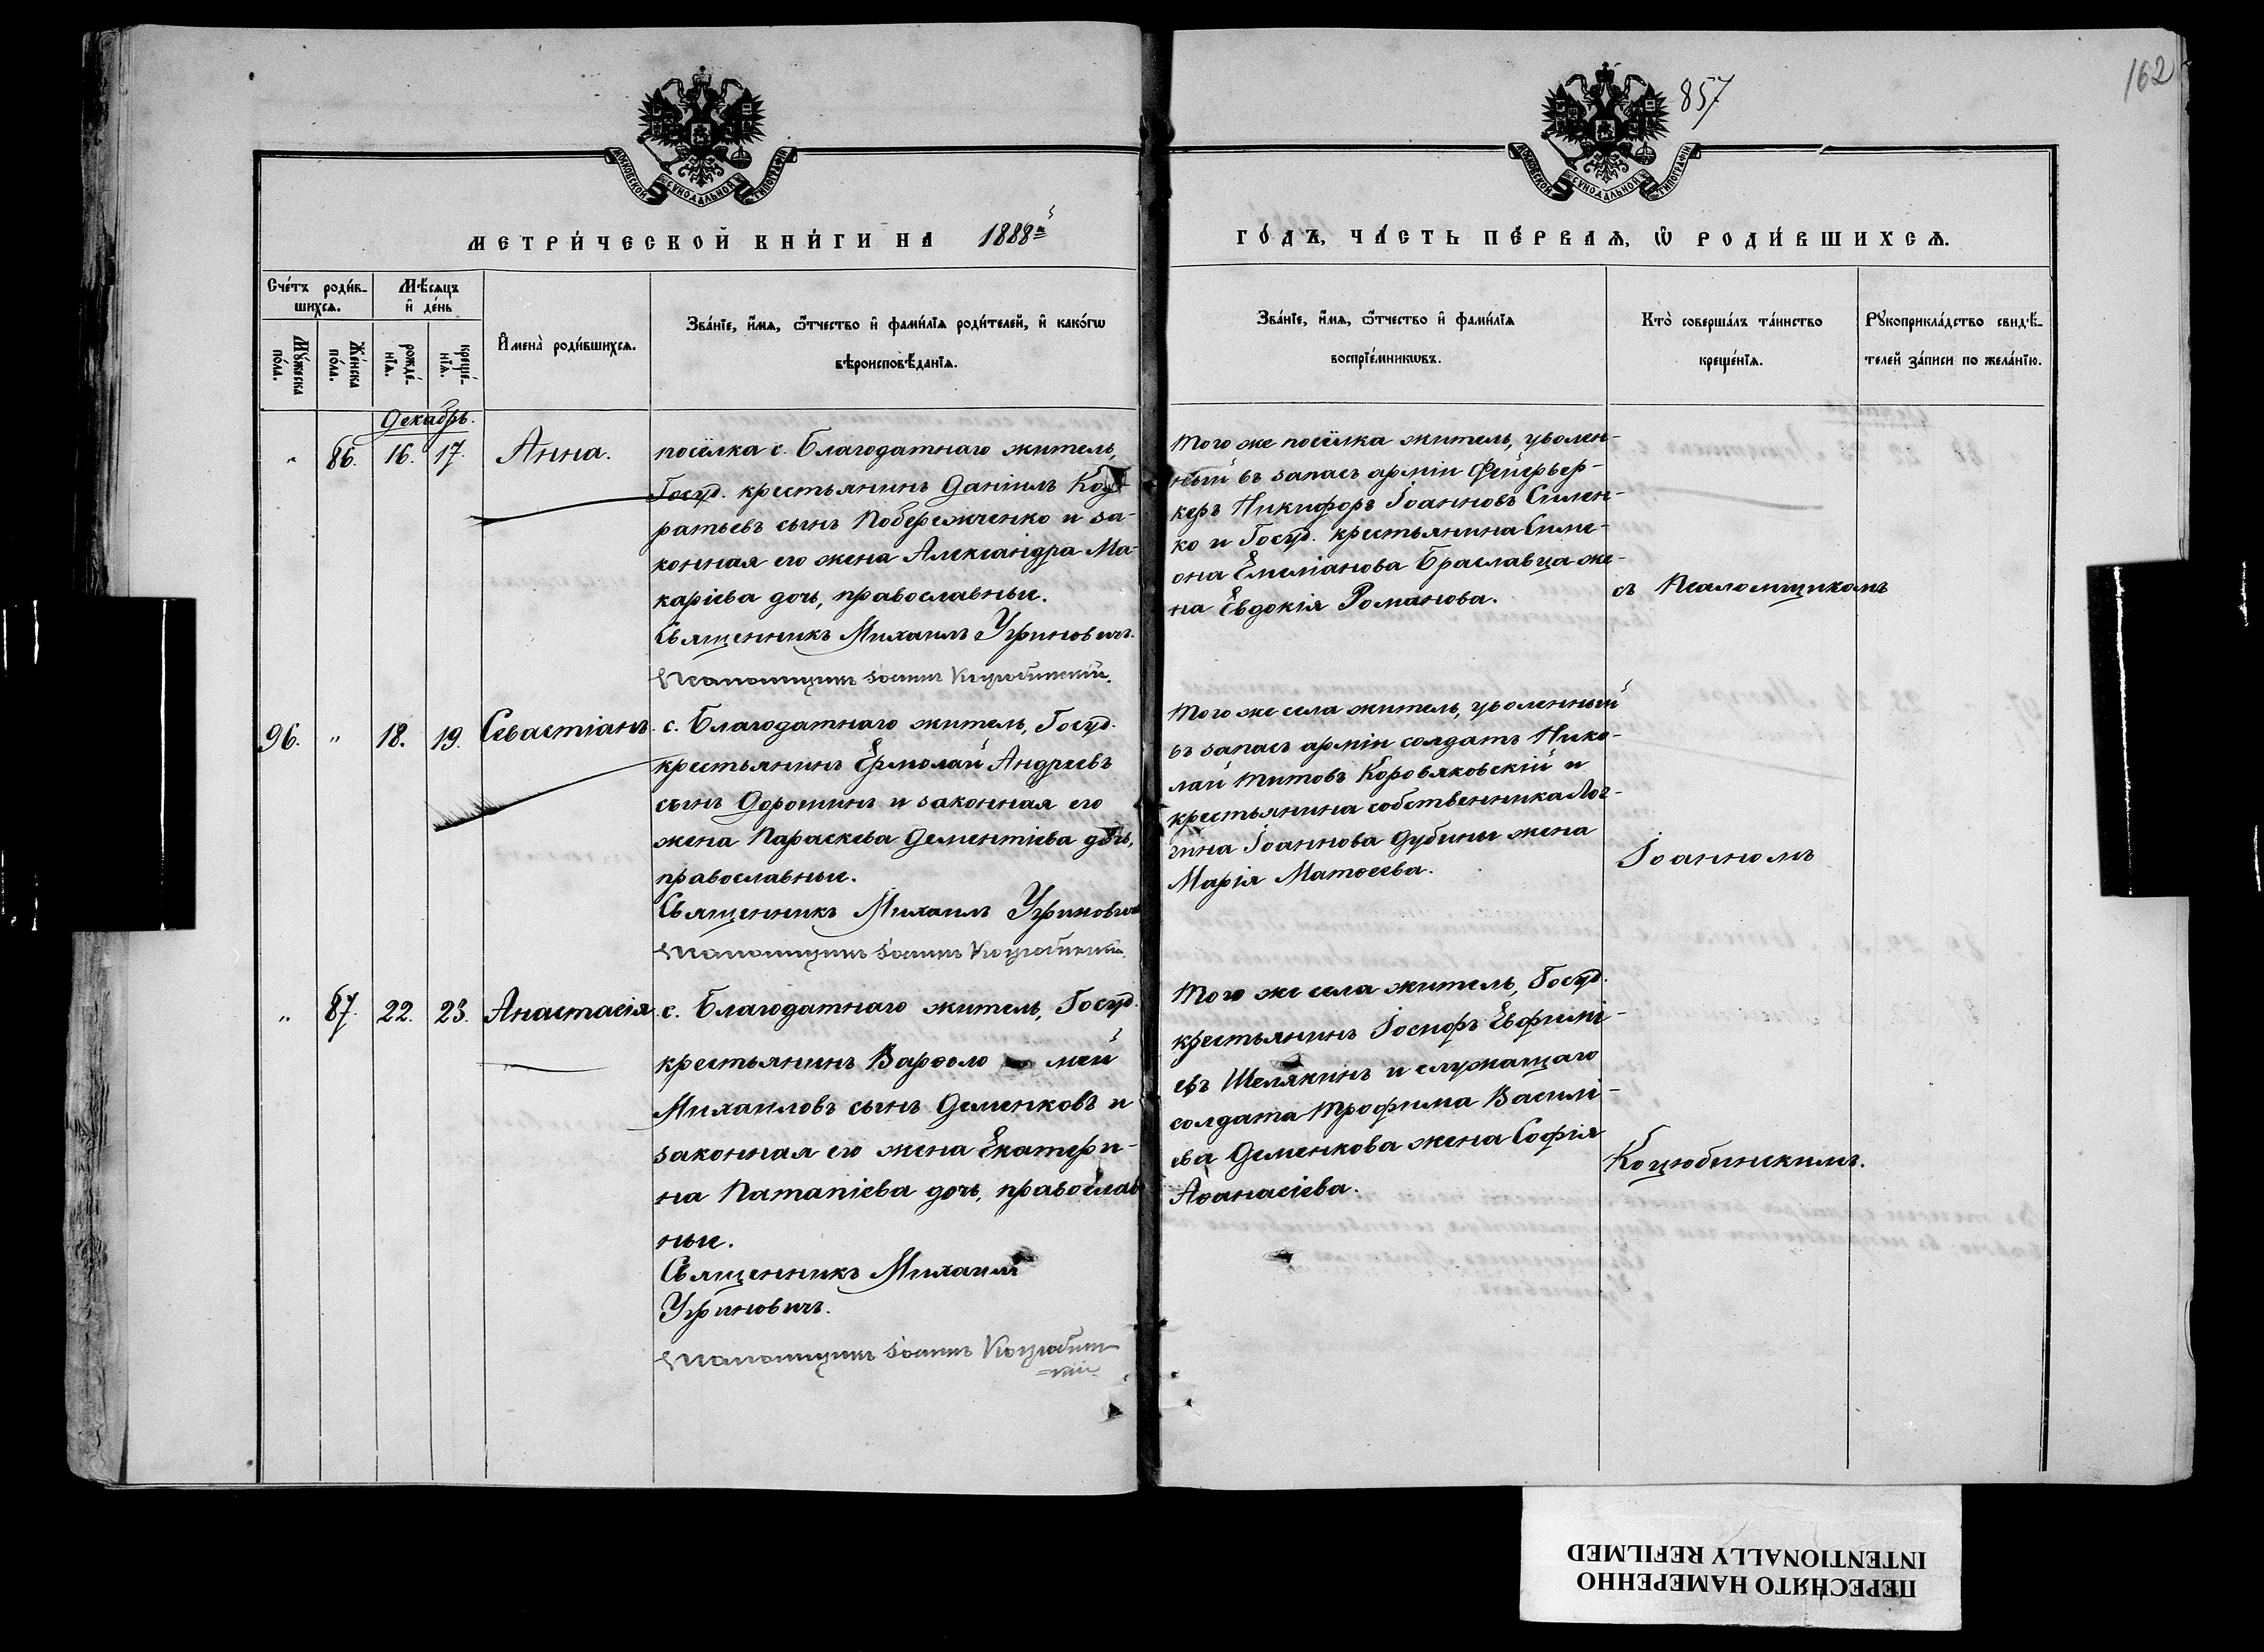 857
162
МОСКОВСКОЙ СѴНОДАЛЬНОЙ ТИПОГРАФІИ
МОСКОВСКОЙ СѴНОДАЛЬНОЙ ТИПОГРАФІИ
МЕТРИ́ЧЕСКОЙ КНИ́ГИ НА 1888й
ГО́ДЪ, ЧА́СТЬ ПЕ́РВАѦ, Ѡ РОДИ́ВШИХСѦ.
Сче́тъ роди́в-
шихсѧ.
Мѣ́сѧцъ
и де́нь
Мꙋ́жеска
по́ла.
Же́нска
по́ла.
рожде́-
нїѧ.
креще́-
нїѧ.
И҆мена̀ роди́вшихсѧ.
Зва́нїе, и҆́мѧ, ѻ҆́тчество и҆ фами́лїѧ роди́телей, и҆ како́гѡ
вѣроисповѣ́данїѧ.
Зва́нїе, и҆́мѧ, ѻ҆́тчество и҆ фами́лїѧ
воспрїе́мникѡвъ.
Кто̀ соверша́лъ та́инство
креще́нїѧ.
Рꙋкоприкла́дство свидѣ́-
телей за́писи по жела́нїю.
Декабрь.
" 86. 16. 17. Анна.
посёлка с. Благодатнаго житель,
Госуд. крестьянинъ Даніилъ Код-
ратьевъ сынъ Побережченко и за-
конная его жена Александра Ма-
каріева дочь, православные.
Священникъ Михаилъ Угриновичъ.
Псаломщикъ Іоаннъ Коцюбинскій.
того же посёлка житель, уволен-
ный въ запасъ арміи Фейервер-
керъ Никифоръ Іоанновъ Силен-
ко и Госуд. крестьянина Симе-
она Емеліанова Браславца же-
на Евдокія Романова.
съ Псаломщикомъ
96. " 18. 19. Севастіанъ.
с. Благодатнаго житель, Госуд.
крестьянинъ Ермолай Андреевъ
сынъ Дорошинъ и законная его
жена Параскева Дементіева дочь,
православные.
Священникъ Михаилъ Угриновичъ
Псаломщикъ Іоаннъ Коцюбинскій.
того же села житель, уволенный
въ запасъ арміи солдатъ Нико-
лай Титовъ Коровяковскій и
крестьянина собственника Лог-
гина Іоаннова Дубины жена
Марія Матѳеева.
Іоанномъ
" 87. 22. 23. Анастасія.
с. Благодатнаго житель, Госуд.
крестьянинъ Варѳоло мей
Михаиловъ сынъ Деменковъ и
законная его жена Екатери-
на Патапіева дочь, православ
ные.
Священникъ Михаилъ
Угриновичъ.
Псаломщикъ Іоаннъ Коцюбин
=скій.
того же села житель, Госуд.
крестьянинъ Іосифъ Евфимі-
евъ Шелякинъ и служащаго
солдата Трофима Василі-
ева Деменкова жена Софія
Аѳанасіева.
Коцюбинскимъ.
ПЕРЕСНЯТО НАМЕРЕННО
INTENTIONALLY REFILMED